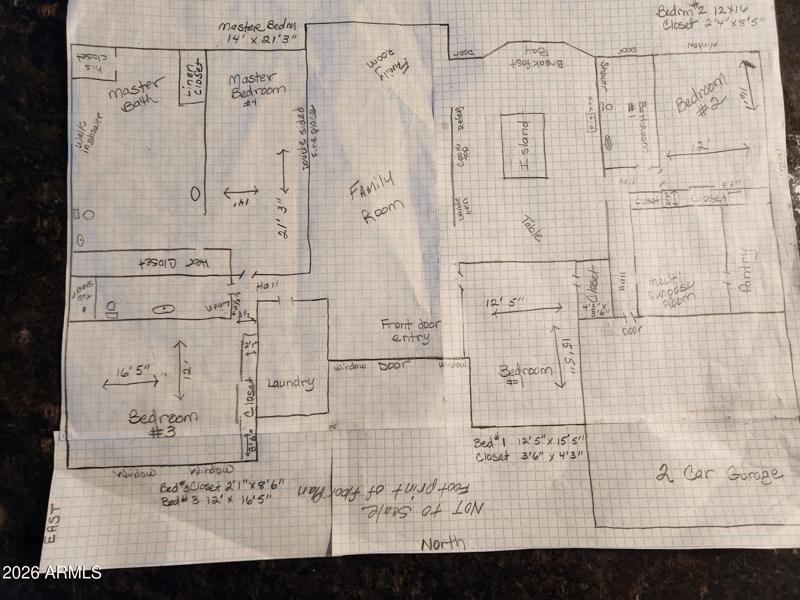 Master Bedrm
14' x 21'3"
Bedrm #2 12x16
Closet 2'4" x 8'5"
his
closet
Master
Bath
Linen
Closet
Master
Bedroom
#4
Family
Room
Door
Breakfast
Bay
Door
Window
Shower
Bathroom
#1
Bedroom
#2
16'
12'
Double sided
Fireplace
Island
14'
21' 3"
Family
Room
Table
Hall
Closet
Closet
Her Closet
Hall
Linen
Closet
Hall
Multi
Purpose
Room
Pantry
12' 5"
15' 5"
Front door
entry
Door
Bedroom
#1
16'5"
12'
Laundry
Closet
8'6"
Window
Door
Window
Bedroom
#3
Window
Window
Bed #1 12'5" x 15'5"
Closet 3'6" x 4'3"
2 Car Garage
Bed #3 Closet 2'1" x 8'6"
Bed #3 12' x 16'5"
Footprint of floor Plan
NOT to Scale
EAST
North
2026 ARMLS